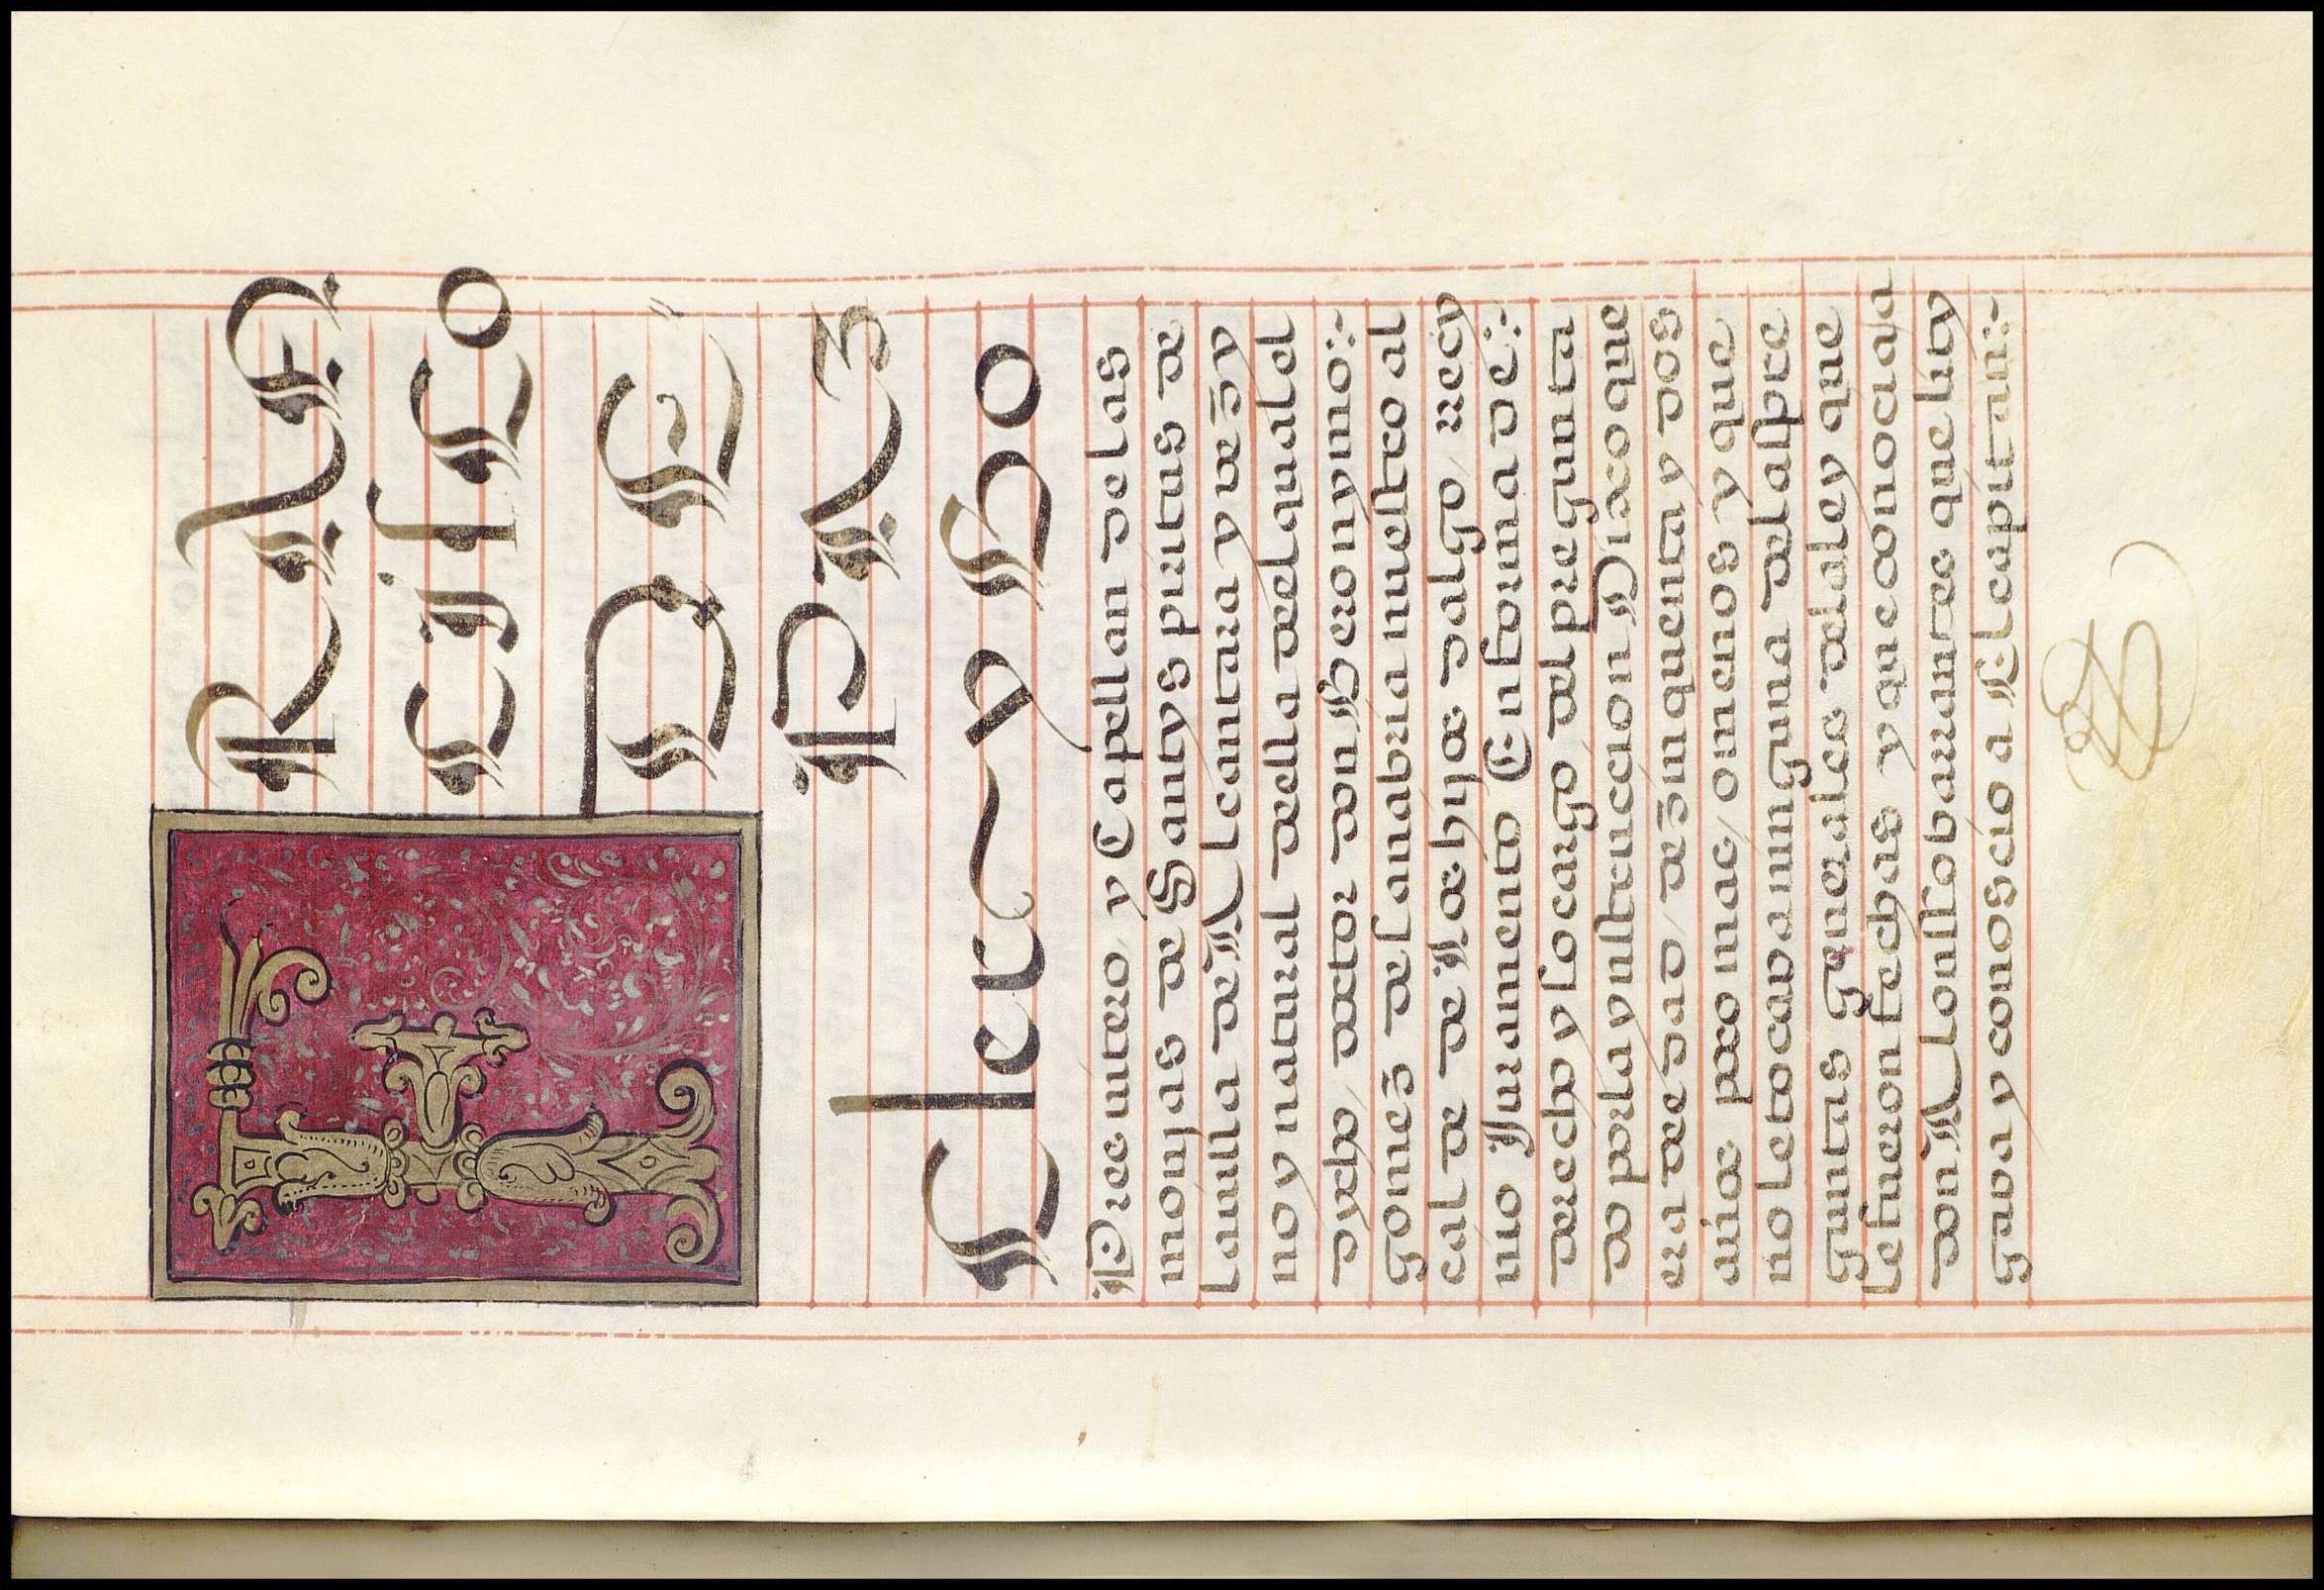 FRAN
CISCO
DE
PAZ
Clerygo
Presvitero y Capellan delas
monjas de Santyspiritus de
lavilla de Alcantara y vezy
no y natural della delqual el
dycho dotor don Geronymo :~
gomez de sanabria nuestro al
cal de de los hijos dalgo recy
vio Juramento En forma de :~
derecho y so cargo del pregunta
do porla ynstruccion Dixo que
era de edad de zinquenta y dos
años poco mas / o menos y que
no le tocava ninguna de las pre
guntas generales de la ley que
le fueron fechas y que conocia a
don Alonso barrantes que lity
gava y conoscio a El capitan :~